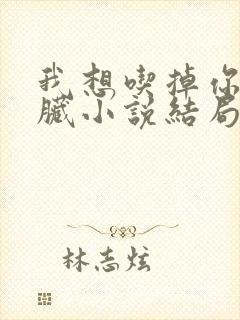 我想喫掉你
臟小説結局
林志炫